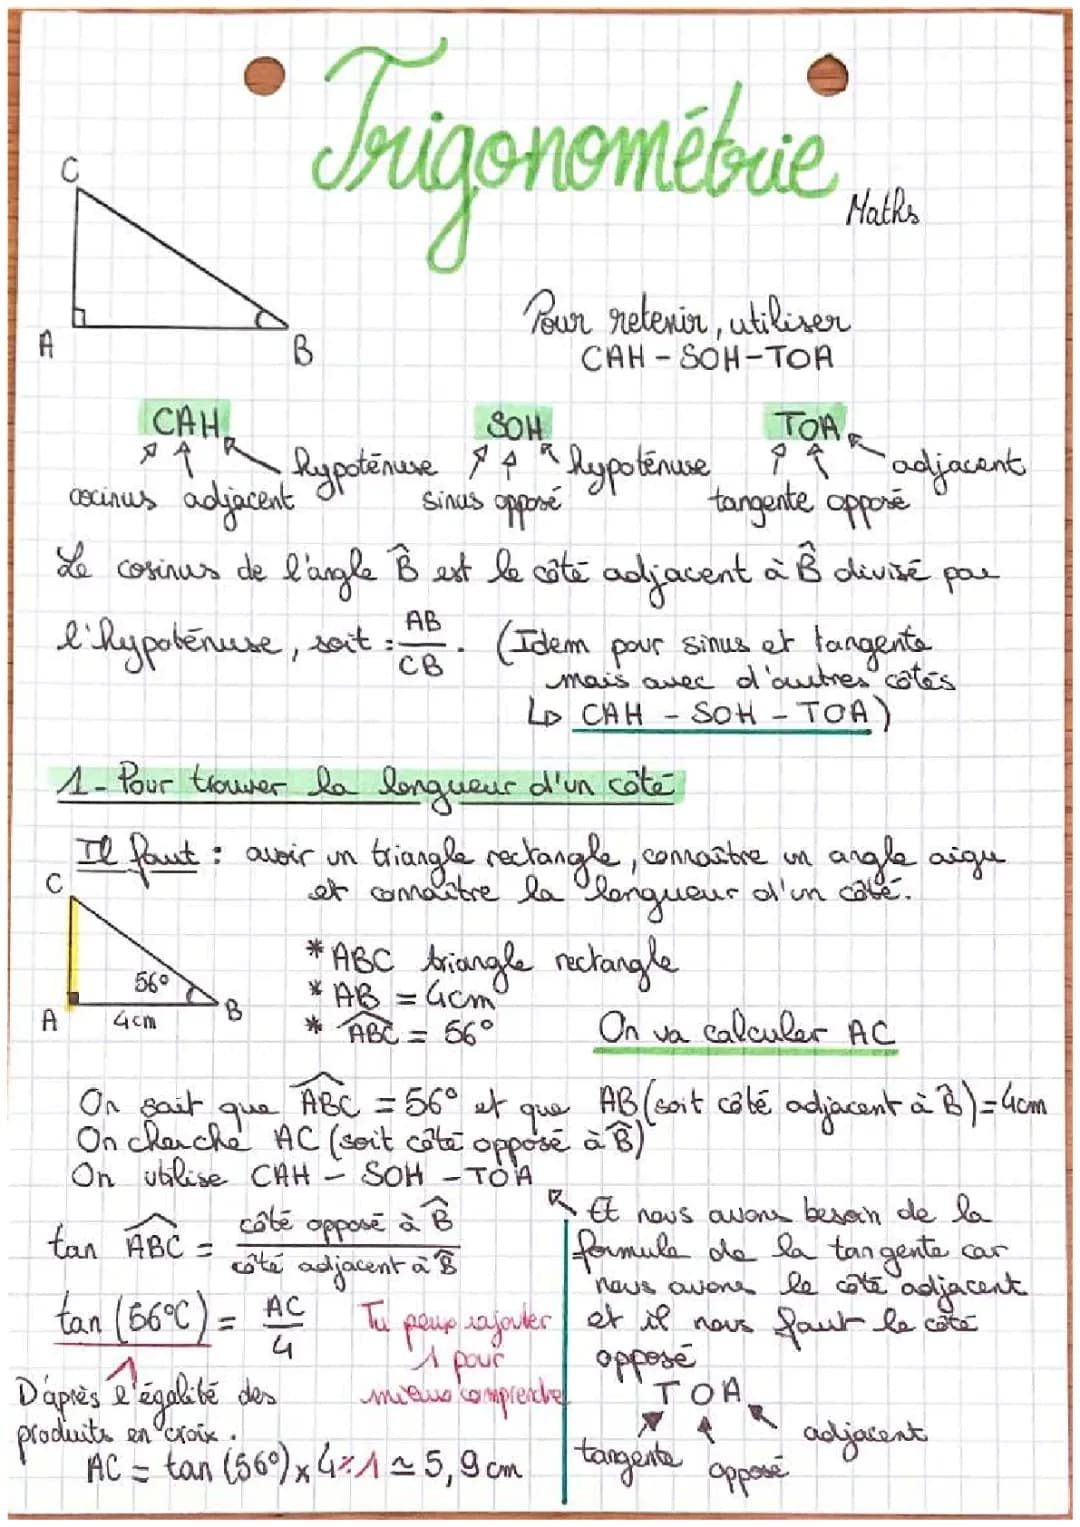 Trigonométrie
Maths
C
A
B
Pour retenir, utiliser
CAH - SOH - TOA
CAH
SOH
TOA
hypoténuse
hypoténuse
adjacent
cocinus adjacent
sinus opposé
tangente opposé
Le cosinus de l'angle B̂ est le côté adjacent à B̂ divisé par
l'hypoténuse, soit : AB/CB. (Idem pour sinus et tangente
mais avec d'autres côtés
↳ CAH - SOH - TOA)
1 - Pour trouver la longueur d'un côté
Il faut : avoir un triangle rectangle, connaître un angle aigu
et connaître la longueur d'un côté.
C
56°
A
4cm
B
* ABC triangle rectangle
* AB = 4cm
* ABC = 56°
On va calculer AC
On sait que ABC = 56° et que AB (soit côté adjacent à B̂) = 4cm
On cherche AC (soit côté opposé à B̂)
On utilise CAH - SOH - TOA
tan ABC = côté opposé à B̂ / côté adjacent à B̂
tan (56°C) = AC/4
1
Tu peux rajouter
1 pour
mieux comprendre
D'après l'égalité des
produits en croix.
AC = tan (56°) x 4 ÷ 1 ≃ 5,9 cm
Et nous avons besoin de la
formule de la tangente car
nous avons le côté adjacent
et il nous faut le côté
opposé
TOA
tangente
opposé
adjacent